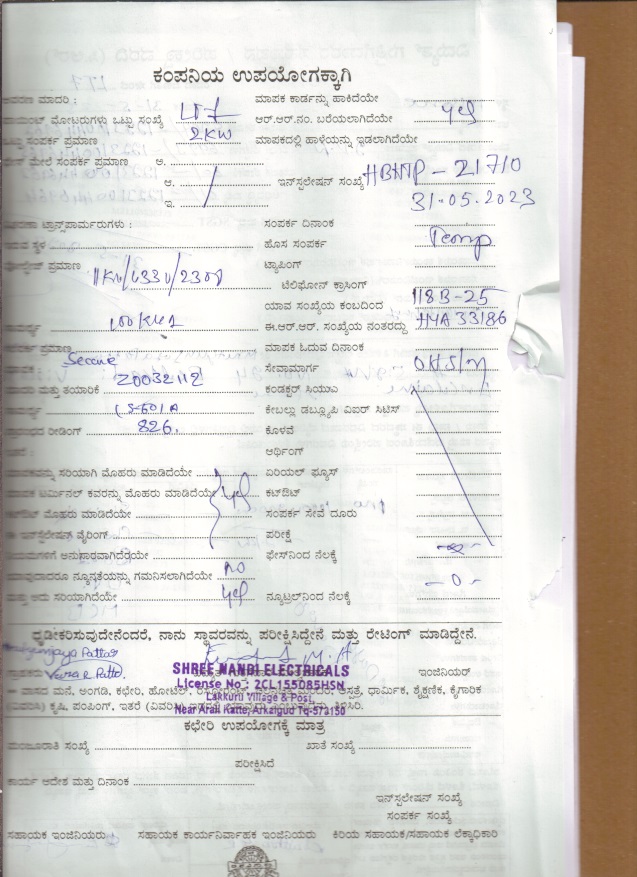 ಕಂಪನಿಯ ಉಪಯೋಗಕ್ಕಾಗಿ
ಮಾದರಿ : LT7 ಮಾಪಕ ಕಾರ್ಡನ್ನು ಹಾಕಿದೆಯೇ
ಮೋಟರುಗಳು ಒಟ್ಟು ಸಂಖ್ಯೆ ಆರ್.ಆರ್.ನಂ. ಬರೆಯಲಾಗಿದೆಯೇ Yes
ಒಟ್ಟು ಸಂಪರ್ಕ ಪ್ರಮಾಣ 2KW ಮಾಪಕದಲ್ಲಿ ಹಾಳೆಯನ್ನು ಇಡಲಾಗಿದೆಯೇ
ಮೇಲೆ ಸಂಪರ್ಕ ಪ್ರಮಾಣ ಅ.
ಆ. ಇನ್‌ಸ್ಟಲೇಷನ್ ಸಂಖ್ಯೆ HBHTP - 21710
ಇ. 31.05.2023
ಟ್ರಾನ್ಸ್‌ಫಾರ್ಮರುಗಳು : ಸಂಪರ್ಕ ದಿನಾಂಕ
ಸ್ಥಳ ಹೊಸ ಸಂಪರ್ಕ Temp
ಪ್ರಮಾಣ 11KV/433V/230V ಟ್ಯಾಪಿಂಗ್
ಟೆಲಿಫೋನ್ ಕ್ರಾಸಿಂಗ್
ಯಾವ ಸಂಖ್ಯೆಯ ಕಂಬದಿಂದ 118B-25
100KVA ಈ.ಆರ್.ಆರ್. ಸಂಖ್ಯೆಯ ನಂತರದ್ದು HYA 33186
ಪ್ರಮಾಣ ಮಾಪಕ ಓದುವ ದಿನಾಂಕ
Secure ಸೇವಾಮಾರ್ಗ
ಮತ್ತು ತಯಾರಿಕೆ Z0032112 ಕಂಡಕ್ಟರ್ ಸಿಯುಎ
ಕೇಬಲ್ಲು ಡಬ್ಲ್ಯೂಪಿ ವಿಐರ್ ಸಿಟಿಸ್
ರೀಡಿಂಗ್ 826. ಕೊಳವೆ
ಆರ್ಥಿಂಗ್
ಸರಿಯಾಗಿ ಮೊಹರು ಮಾಡಿದೆಯೇ ಏರಿಯಲ್ ಫ್ಯೂಸ್
ಟರ್ಮಿನಲ್ ಕವರನ್ನು ಮೊಹರು ಮಾಡಿದೆಯೇ Yes ಕಟ್‌ಔಟ್
ಮೊಹರು ಮಾಡಿದೆಯೇ ಸಂಪರ್ಕ ಸೇವೆ ದೂರು
ಇನ್‌ಸ್ಟಲೇಷನ್ ವೈರಿಂಗ್ ಪರೀಕ್ಷೆ
ಅನುಸಾರವಾಗಿದೆಯೇ ಫೇಸ್‌ನಿಂದ ನೆಲಕ್ಕೆ
ನ್ಯೂನ್ಯತೆಯನ್ನು ಗಮನಿಸಲಾಗಿದೆಯೇ NO
ಮತ್ತು ಅದು ಸರಿಯಾಗಿದೆಯೇ Yes ನ್ಯೂಟ್ರಲ್‌ನಿಂದ ನೆಲಕ್ಕೆ - 0 -
ದೃಡೀಕರಿಸುವುದೇನೆಂದರೆ, ನಾನು ಸ್ಥಾವರವನ್ನು ಪರೀಕ್ಷಿಸಿದ್ದೇನೆ ಮತ್ತು ರೇಟಿಂಗ್ ಮಾಡಿದ್ದೇನೆ.
ಇಂಜಿನಿಯರ್
SHREE NANDI ELECTRICALS
License No : 2CL155085HSN
Lakkuru Village & Post,
Near Arali Katte, Arkalgud Tq-573150
ವಾಸದ ಮನೆ, ಅಂಗಡಿ, ಕಛೇರಿ, ಹೋಟೆಲ್, ಆಸ್ಪತ್ರೆ, ಧಾರ್ಮಿಕ, ಶೈಕ್ಷಣಿಕ, ಕೈಗಾರಿಕ
ಕೃಷಿ, ಪಂಪಿಂಗ್, ಇತರೆ
ಕಛೇರಿ ಉಪಯೋಗಕ್ಕೆ ಮಾತ್ರ
ಮಂಜೂರಾತಿ ಸಂಖ್ಯೆ ಖಾತೆ ಸಂಖ್ಯೆ
ಪರೀಕ್ಷಿಸಿದೆ
ಕಾರ್ಯ ಆದೇಶ ಮತ್ತು ದಿನಾಂಕ
ಇನ್‌ಸ್ಟಲೇಷನ್ ಸಂಖ್ಯೆ
ಸಂಪರ್ಕ ಸಂಖ್ಯೆ
ಸಹಾಯಕ ಇಂಜಿನಿಯರು ಸಹಾಯಕ ಕಾರ್ಯನಿರ್ವಾಹಕ ಇಂಜಿನಿಯರು ಕಿರಿಯ ಸಹಾಯಕ/ಸಹಾಯಕ ಲೆಕ್ಕಾಧಿಕಾರಿ